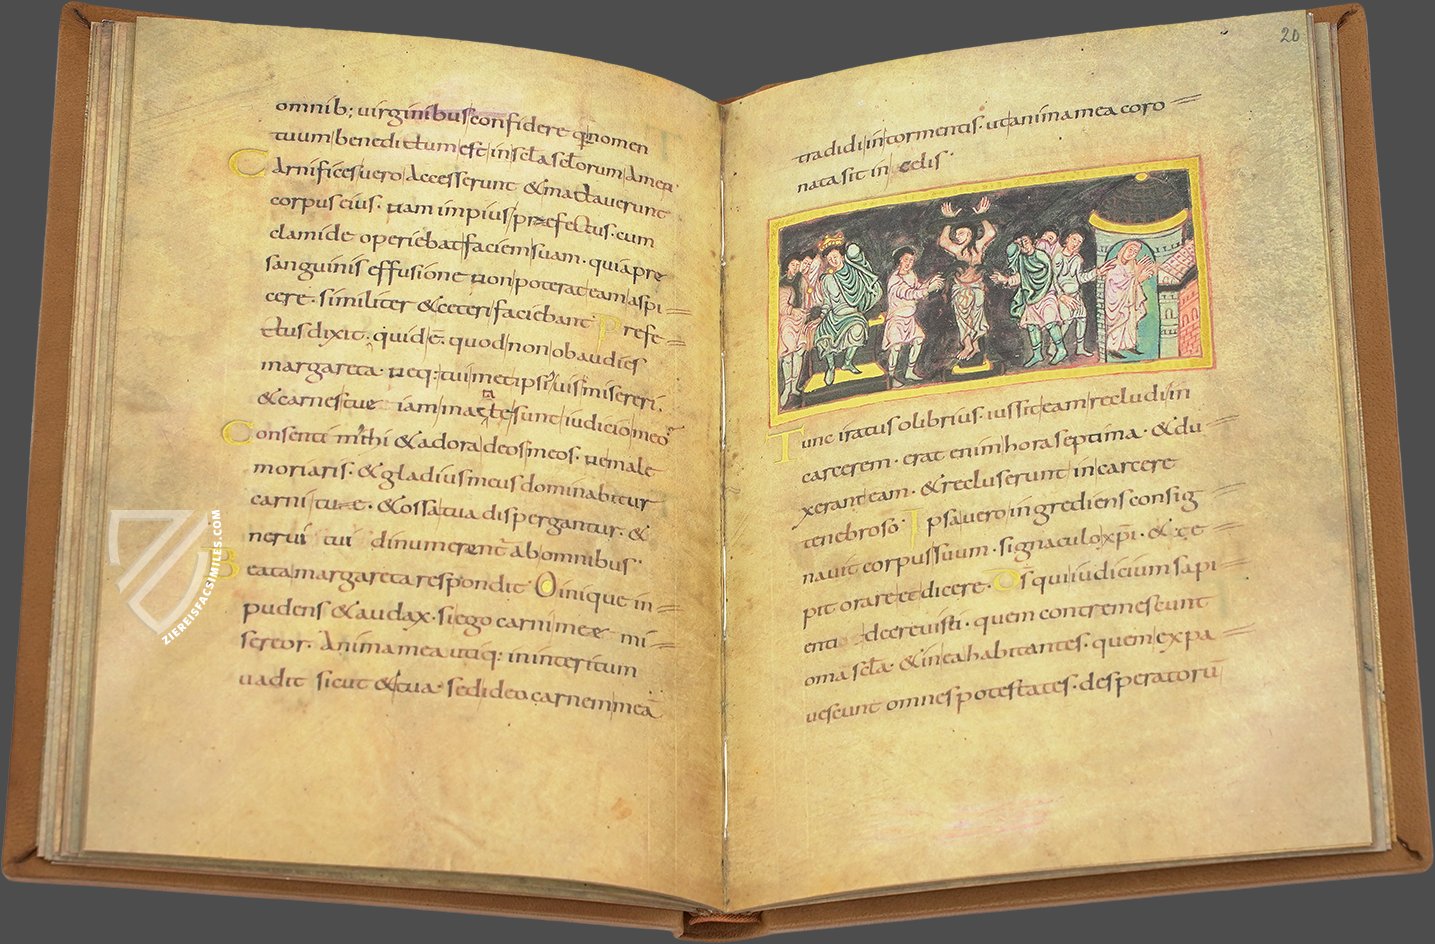 omnib; uirginibus confidere qr nomen
tuum benedictum est in scła scłorum Amen·
Carnifices uero Accesserunt & mactauerunt
corpus eius· nam impius præfectus· cum
clamide operiebat faciem suam· quia pre
sanguinis effusione non poterat eam aspi
cere· similiter & ceteri faciebant· Prefe
ctus dixit· quid ē· quod non obaudies
margareta· neq: tui metipsi uis misereri·
& carnes tue iam mactate sunt iudicio meo
Consenti mihi & adora deos meos· ne male
moriaris· & gladius meus dominabitur
carni tuæ· & ossa tua dispergantur· &
nerui tui dinumerent ab omnibus·
Beata margareta respondit· O inique in
pudens & audax· si ego carni meæ mi
sereor· Anima mea utiq: in interitum
uadit sicut & tua· sed ideo carnem meā
20
tradidi in tormentis· ut anima mea coro
nata sit in celis·
Tunc iratus olibrius· iussit eam recludi in
carcerem· erat enim hora septima· & du
xerant eam· & recluserunt in carcere
tenebroso· Ipsa uero ingrediens consig
nauit corpus suum· signaculo xpi· & ce
pit orare et dicere· Ds qui iudicium sapi
enti decreuisti· quem contremescunt
oma scła· & in ea habitantes· quem expa
uescunt omnes potestates· desperatorū
ZIEREISFACSIMILES.COM